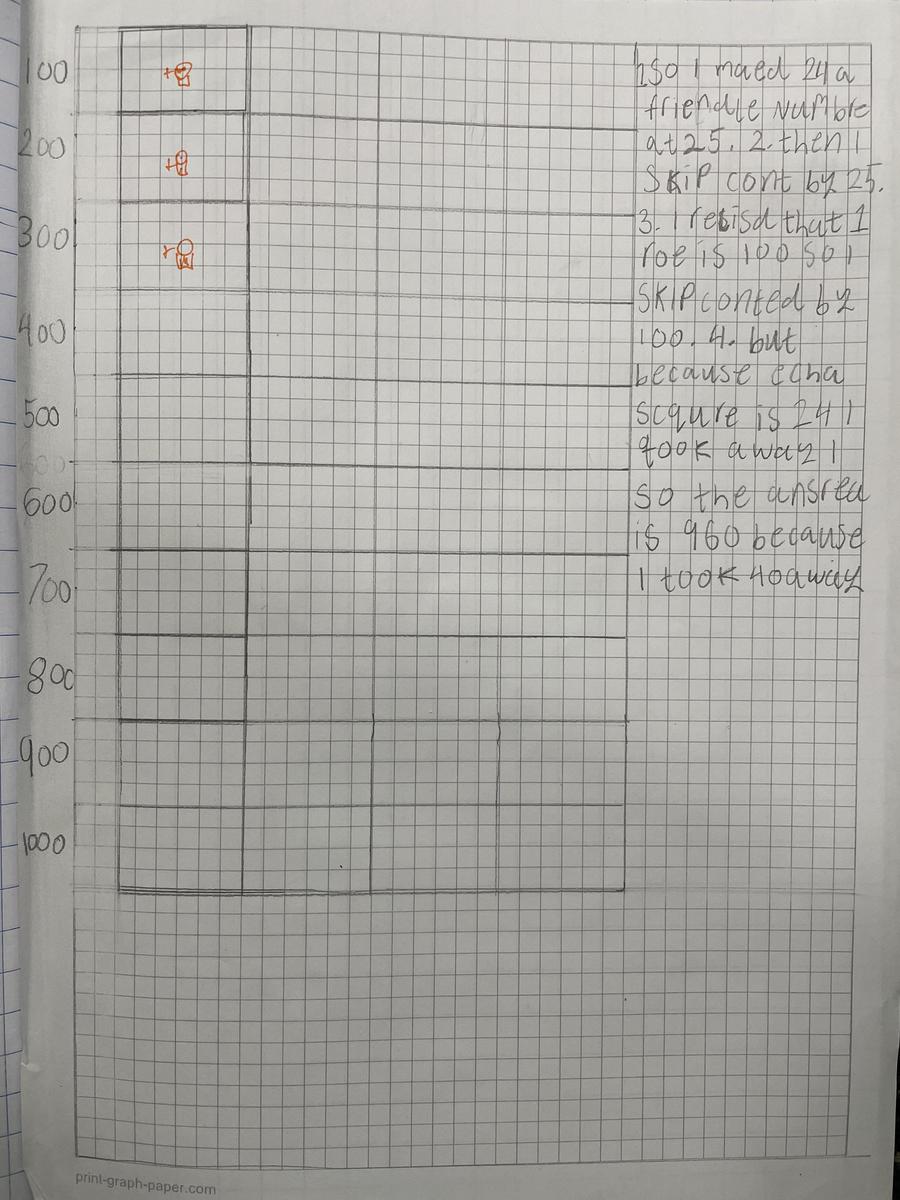 100
200
300
400
500
600
600
700
800
900
1000
1 So I maed 24 a
friendle Numbre
at 25. 2. then I
SKiP cont by 25.
3. I relisd that 1
roe is 100 so I
SKIP conted by
100. 4. but
because echa
scqure is 24 I
took away 1
so the ansrea
is 960 because
I took 40 away
print-graph-paper.com